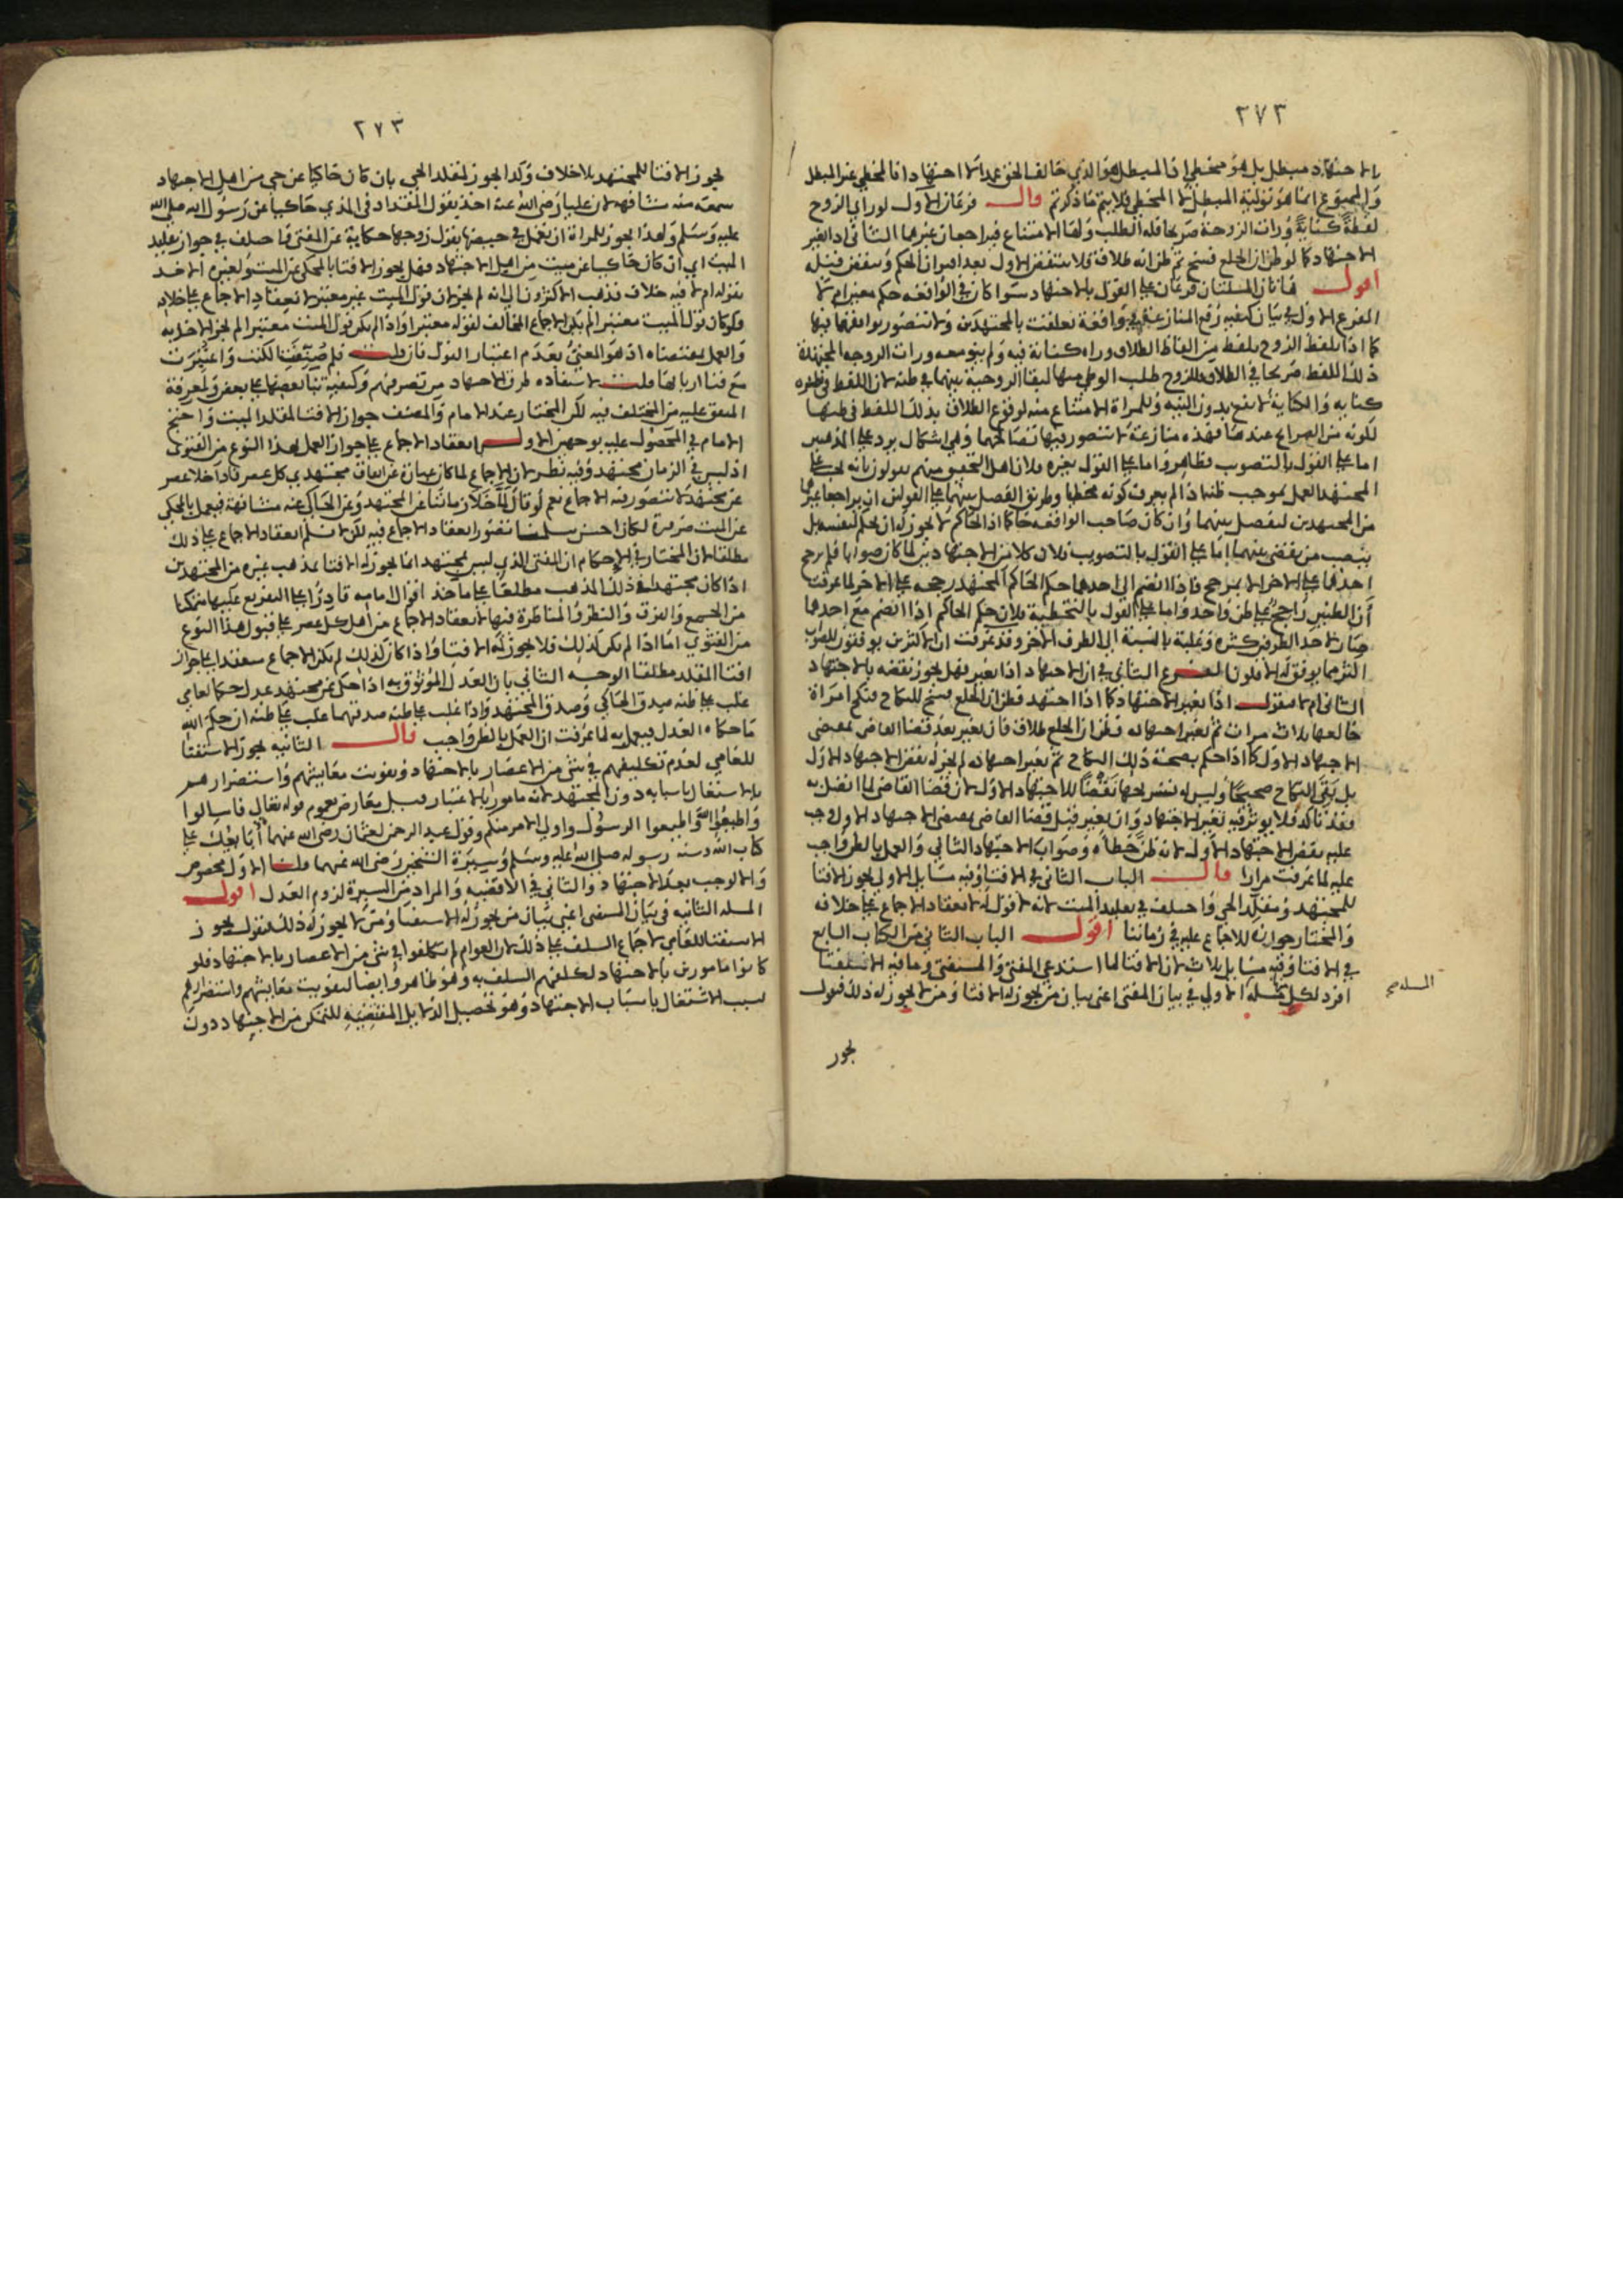 ٢٧٣
الاجتهاد مبطل بل هو مخطئ اذ المبطل هو الذي خالف الحق عمدا
والممنوع انما هو تولية المبطل لا المخطي فلا يتم ما ذكرتم قال فرعان الاول لو راي الزوج
لفظة كناية ورات الزوجة صريحا فله الطلب ولها الامتناع فيراجعان غيرهما الثاني اذا تغير
الاجتهاد كما لو ظن ان الخلع فسخ ثم ظن انه طلاق فلا ينتقض الاول بعد اقتران الحكم وينقض قبله
اقول هاتان المسئلتان فرعان على القول بالاجتهاد سوا كان في الواقعة حكم معين ام لا
الفرع الاول في بيان كيفية رفع المنازعة في واقعة تعلقت بالمجتهدين
كما اذا تلفظ الزوج بلفظ من الفاظ الطلاق وراه كناية فيه ولم ينو معه ورات الزوجة المجتهدة
ذلك اللفظ صريحا في الطلاق فللزوج طلب الوطي منها لبقا الزوجية بينهما في ظنه لان اللفظ في ظنه
كناية والكناية لا تقع بدون النية وللمراة الامتناع منه لوقوع الطلاق بذلك اللفظ في ظنها
لكونه من الصرايح عندها فهذه منازعة لا يتصور فيها
اما على القول بالتصويب فظاهر واما على القول بغيره فلان اهل التحقيق منهم يقولون بانه يجب على
المجتهد العمل بموجب ظنه اذا لم يعرف كونه مخطيا وطريق الفصل بينهما على القولين ان يراجعا غيرهما
من المجتهدين ليفصل بينهما وان كان صاحب الواقعة حاكما اذ الحاكم لا يجوز له ان يحكم لنفسه بل
ينصب من يقضي بينهما اما على القول بالتصويب فلان كلا من الاجتهادين لما كان صوابا فلم يرجح
احدهما على الاخر الا بمرجح فاذا انضم الى احدهما حكم الحاكم المجتهد رجحه على الاخر لما عرفت
ان الظنين راجح على ظن واحد واما على القول بالتخطية فلان حكم الحاكم اذا انضم مع احدهما
صار لاحد الطرفين كثرة وغلبة بالنسبة الى الطرف الاخر وقد عرفت ان الاكثرين يوفقون للصواب
اكثر مما يوفق له الاقلون الفرع الثاني في ان الاجتهاد اذا تغير فهل يجوز نقضه بالاجتهاد
الثاني ام لا فنقول اذا تغير الاجتهاد كما اذا اجتهد فظن ان الخلع فسخ للنكاح فنكح امراة
خالعها ثلاث مرات ثم تغير اجتهاده فظن ان الخلع طلاق فان تغير بعد قضا القاضي بمقتضى
الاجتهاد الاول كما اذا حكم بصحة ذلك النكاح ثم تغير اجتهاده لم يجز له نقض الاجتهاد الاول
بل بقي النكاح صحيحا وليس له تسريحها نقضا للاجتهاد الاول لان قضا القاضي لما اتصل به
فقد تاكد فلا يوثر فيه تغير الاجتهاد وان تغير قبل قضا القاضي بمقتضى الاجتهاد الاول وجب
عليه نقض الاجتهاد الاول لانه ظن خطاه وصواب الاجتهاد الثاني والعمل بالظن واجب
عليه لما عرفت مرارا قال الباب الثاني في الافتا وفيه مسايل الاولى يجوز الافتا
للمجتهد ومقلد الحي واختلف في تقليد الميت لانه لا قول له لانعقاد الاجماع على خلافه
والمختار جوازه للاجماع عليه في زماننا اقول الباب الثاني من الكتاب السابع
في الافتا وفيه مسايل ثلاث لان الافتا لما استدعى المفتي والمستفتي وما فيه الاستفتا
افرد لكل مسئلة الاولى في بيان المفتي اعني بيان من يجوز له الافتا ومن لا يجوز له ذلك فنقول
المسله صح
يجوز
٢٧٣
يجوز الافتا للمجتهد بلا خلاف وكذا يجوز لمقلد الحي بان كان حاكيا عن حي من اهل الاجتهاد
سمعه منه مشافهة لان عليا رضي الله عنه اخذ بقول المقداد في المذي حاكيا عن رسول الله صلى الله
عليه وسلم ولهذا يجوز للمراة ان تعمل في حيضها بقول زوجها حكاية عن المفتي واختلف في جواز تقليد
الميت اي ان كان حاكيا عن ميت من اهل الاجتهاد فهل يجوز الافتا بالمحكي
بقوله ام لا فيه خلاف فذهب الاكثرون الى انه لم يجز لان قول الميت غير معتبر لانعقاد الاجماع على خلافه
ولو كان قول الميت معتبرا لم يكن الاجماع المخالف لقوله معتبرا واذا لم يكن قول الميت معتبرا لم يجز الاخذ به
والعمل بمقتضاه اذ هو المعني بعدم اعتبار القول فان قلت فلم صنفت الكتب واعتبرت
مع فنا اربابها قلت لاستفادة طرق الاجتهاد من تصرفهم وكيفية بنا بعضها على بعض ولمعرفة
المتفق عليه من المختلف فيه لكن المختار عند الامام والمصنف جواز الافتا لمقلد الميت واحتج
الامام في المحصول عليه بوجهين الاول انعقاد الاجماع على جواز العمل بهذا النوع من الفتوى
اذ ليس في الزمان مجتهد وفيه نظر لان الاجماع لما كان عبارة عن اتفاق مجتهدي كل عصر فاذا خلا عصر
عن مجتهد لا يتصور فيه الاجماع نعم لو قال لما خلا زماننا عن المجتهد وعن الحاكي عنه مشافهة فيعمل بالمحكي
عن الميت ضرورة لكان احسن سلمنا تصور انعقاد الاجماع فيه لكن لا نسلم انعقاد الاجماع على ذلك
مطلقا لان المختار في الاحكام ان المفتي الذي ليس بمجتهد انما يجوز له الافتا بمذهب غيره من المجتهدين
اذا كان مجتهدا في ذلك المذهب مطلعا على ماخذ اقوال امامه قادرا على التفريع عليها متمكنا
من الجمع والفرق والنظر والمناظرة فيها لانعقاد الاجماع من اهل كل عصر على قبول هذا النوع
من الفتوى اما اذا لم يكن كذلك فلا يجوز له الافتا واذا كان كذلك لم يكن الاجماع منعقدا على جواز
افتا المقلد مطلقا الوجه الثاني بان العدل الموثوق به اذا حكى عن مجتهد عدل حكما لعامي
غلب على ظنه صدق الحاكي وصدق المجتهد واذا غلب على ظنه صدقهما غلب على ظنه ان حكم الله
ما حكاه العدل فيعمل به لما عرفت ان العمل بالظن واجب قال الثانية يجوز الاستفتا
للعامي لعدم تكليفهم في شي من الاعصار بالاجتهاد وتفويت معايشهم واستضرارهم
بالاشتغال باسبابه دون المجتهد لانه مامور بالاعتبار قيل معارض بعموم قوله تعالى فاسالوا
واطيعوا الله واطيعوا الرسول واولي الامر منكم وقول عبد الرحمن لعثمان رضي الله عنهما ابايعك على
كتاب الله وسنة رسوله صلى الله عليه وسلم وسيرة الشيخين رضي الله عنهما قلنا الاول مخصوص
والا لوجب بعد الاجتهاد والثاني في الاقضية والمراد من السيرة لزوم العدل اقول
المسلة الثانية في بيان المستفتي اعني بيان من يجوز له الاستفتا ومن لا يجوز له ذلك فنقول يجوز
الاستفتا للعامي لاجماع السلف على ذلك لان العوام لم يتكلفوا في شي من الاعصار بالاجتهاد فلو
كانوا مامورين بالاجتهاد لكلفهم السلف به وهو ظاهر وايضا لتفويت معايشهم واستضرارهم
بسبب الاشتغال باسباب الاجتهاد وهو تحصيل الدلايل المقتضية للتمكن من الاجتهاد دون